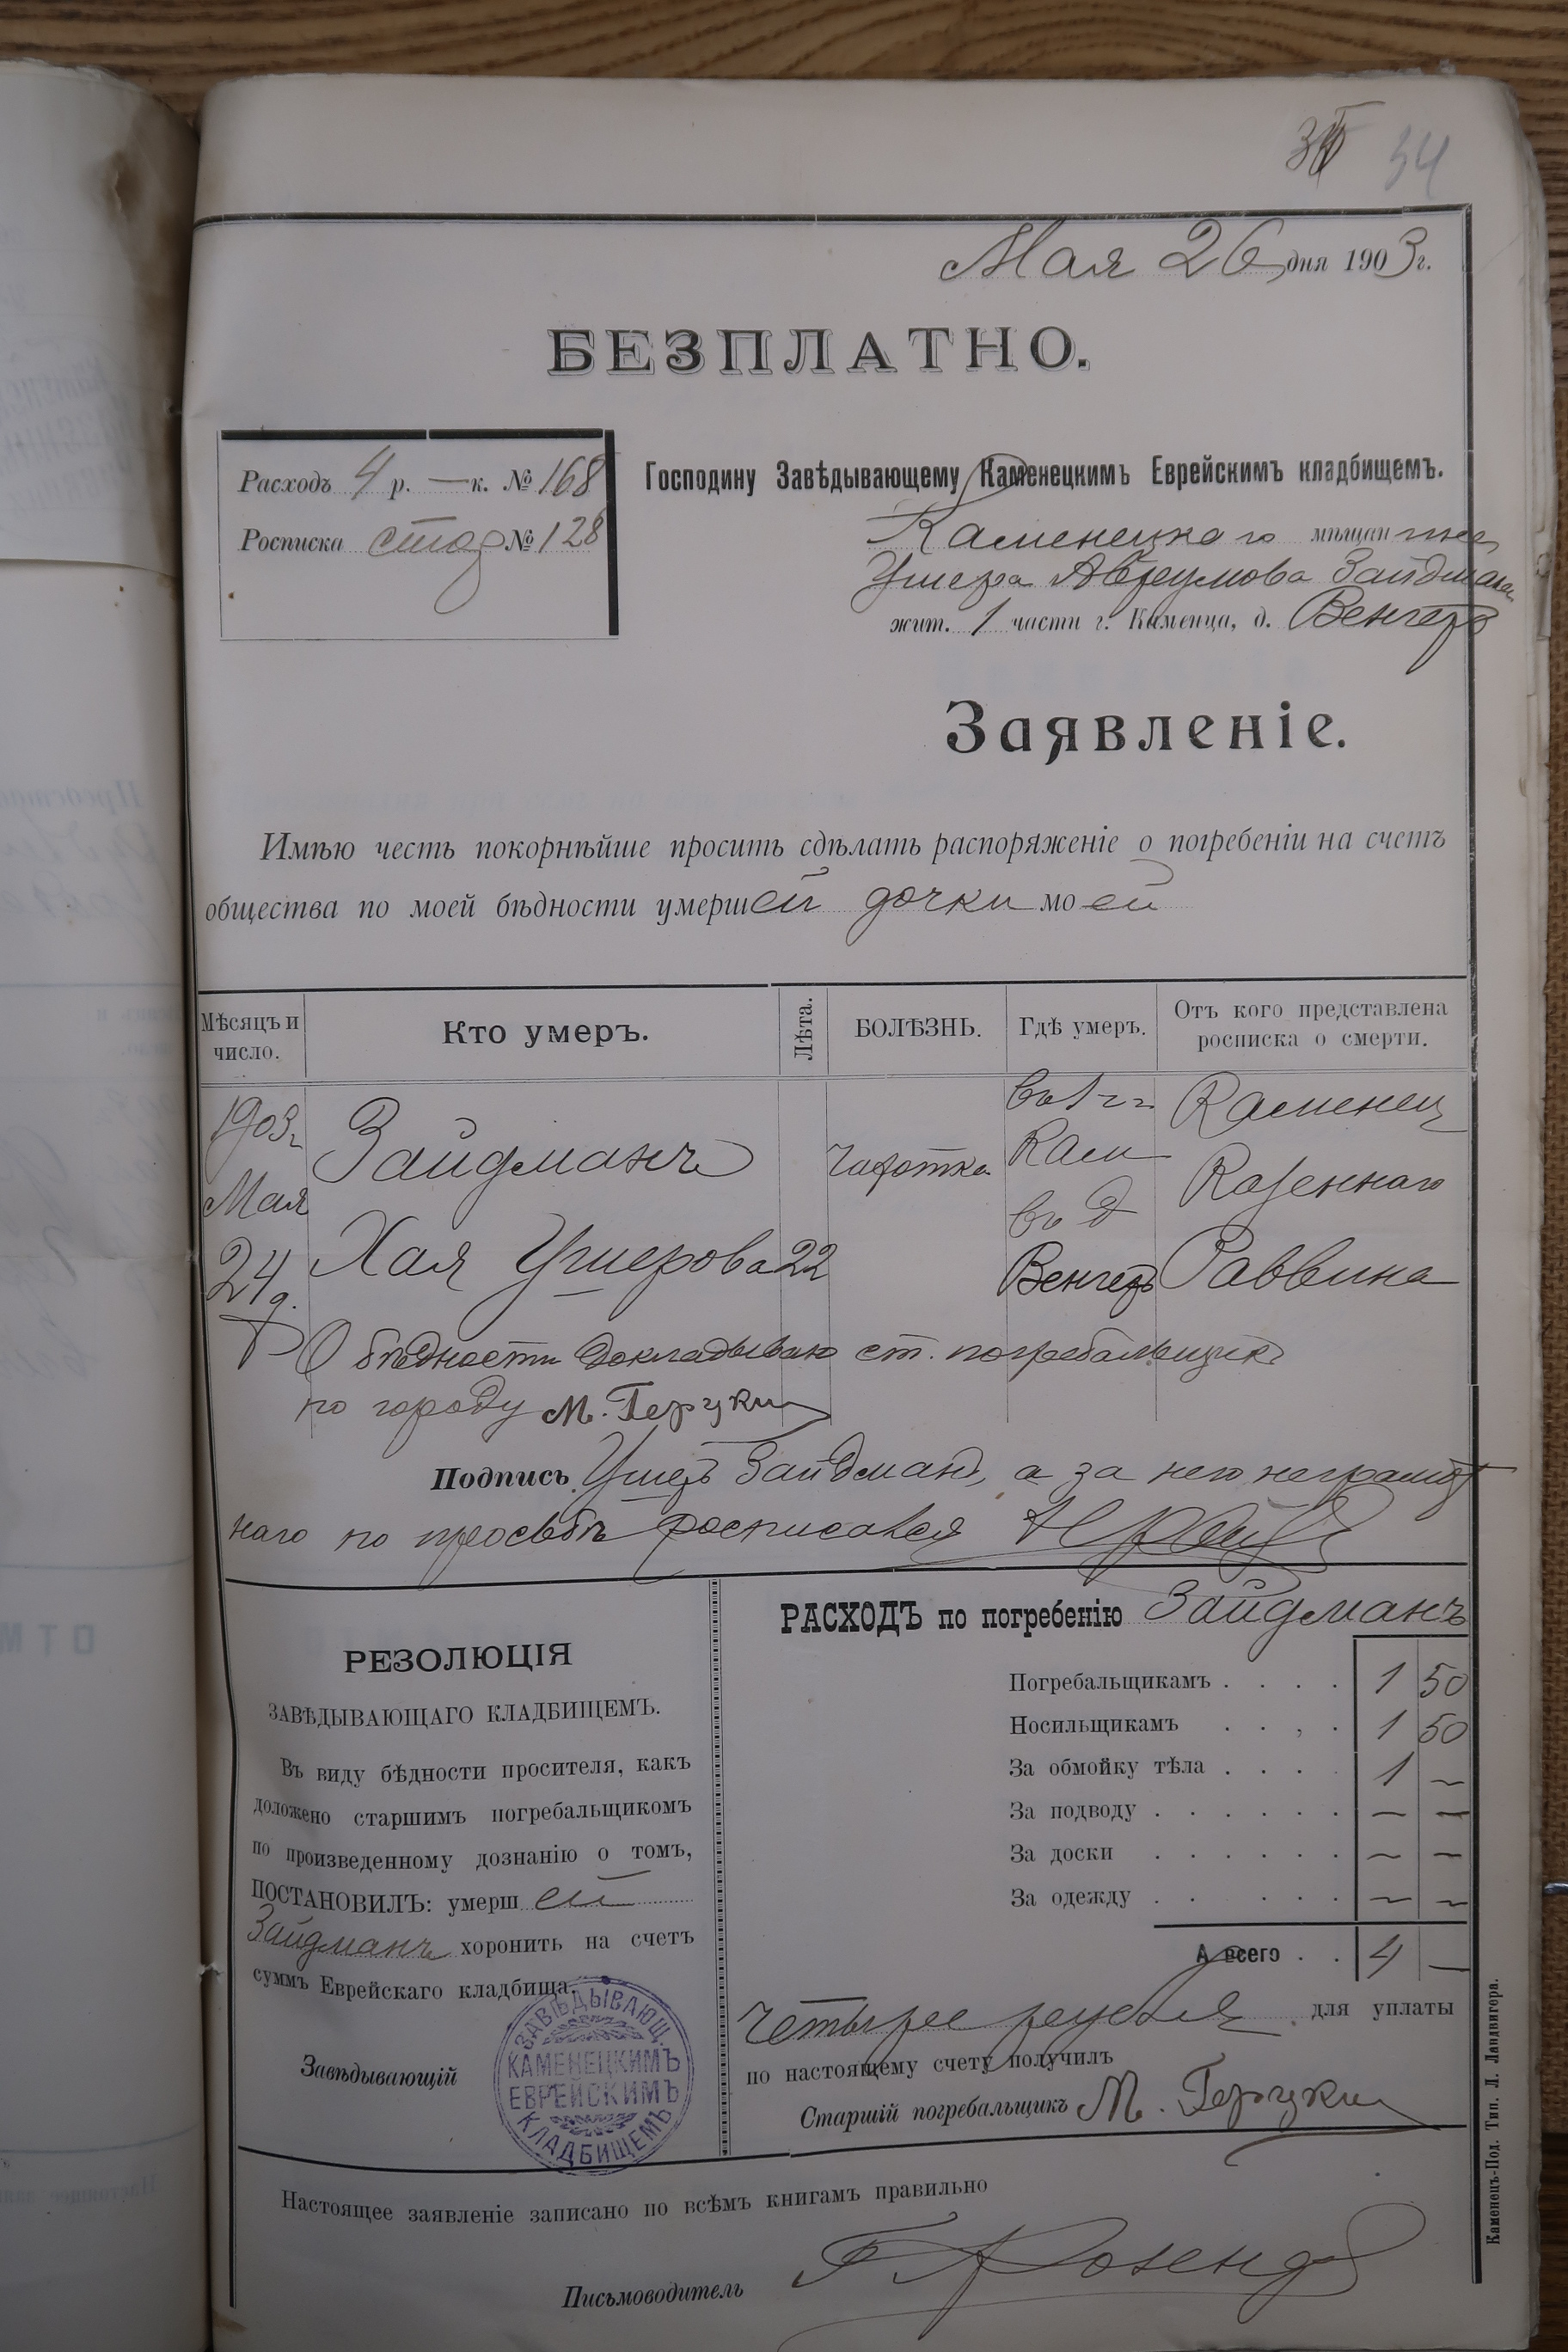 34
Мая 26 дня 1903 г.
БЕЗПЛАТНО.
Расходъ 4 р. — к. № 168
Росписка № 128
Господину Завѣдывающему Каменецкимъ Еврейскимъ кладбищемъ.
Каменецкаго мѣщан
Ушера Аврумова Зайдмана
жит. 1 части г. Каменца, д. Венгеръ
Заявленіе.
Имѣю честь покорнѣйше просить сдѣлать распоряженіе о погребеніи на счетъ
общества по моей бѣдности умершей дочки моей
Мѣсяцъ и число. Кто умеръ. Лѣта. БОЛѢЗНЬ. Гдѣ умеръ. Отъ кого представлена росписка о смерти.
1903 г. Зайдманъ Чахотка въ 1 ч. Каменец
Мая Кам Казеннаго
24 д. Хая Ушерова 22 въ д Венгеръ Раввина
О бѣдности докладываю ст. погребальщикъ
по городу М. Герцкин
Подпись Ушеръ Зайдманъ, а за него неграмот
наго по просьбѣ росписался
РЕЗОЛЮЦІЯ
ЗАВѢДЫВАЮЩАГО КЛАДБИЩЕМЪ.
Въ виду бѣдности просителя, какъ
доложено старшимъ погребальщикомъ
по произведенному дознанію о томъ,
ПОСТАНОВИЛЪ: умершей
Зайдманъ хоронить на счетъ
суммъ Еврейскаго кладбища.
Завѣдывающій
ЗАВѢДЫВАЮЩ.
КАМЕНЕЦКИМЪ
ЕВРЕЙСКИМЪ
КЛАДБИЩЕМЪ
РАСХОДЪ по погребенію Зайдманъ
Погребальщикамъ . . . . 1 50
Носильщикамъ . . , . 1 50
За обмойку тѣла . . . . 1 —
За подводу . . . . . . — —
За доски . . . . . . — —
За одежду . . . . . . — —
А всего . . 4 —
Четыре рубля для уплаты
по настоящему счету получилъ
Старшій погребальщикъ М. Герцкин
Настоящее заявленіе записано по всѣмъ книгамъ правильно
Письмоводитель
Каменецъ-Под. Тип. Л. Ландвигера.